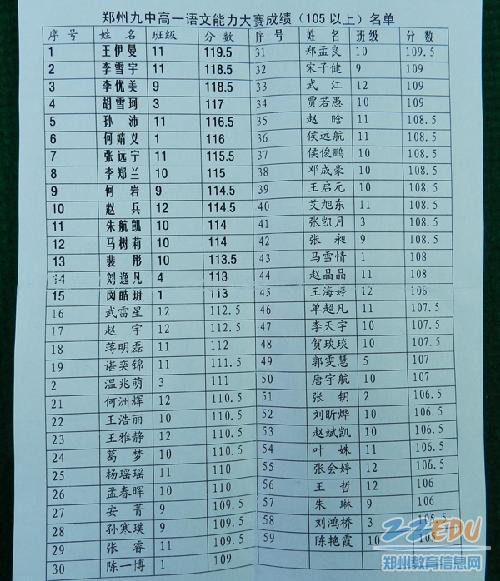 郑州九中高一语文能力大赛成绩（105以上）名单
序号 姓名 班级 分数 序号 姓名 班级 分数
1 王伊曼 11 119.5 31 郑孟良 10 109.5
2 李雪宇 11 118.5 32 宋子健 9 109
3 李优美 9 118.5 33 武江 12 109
4 胡雪珂 3 117 34 贾若愚 10 109
5 孙沛 11 116.5 35 赵晗 11 108.5
6 何靖义 1 116 36 侯远航 11 108.5
7 张远宁 11 115.5 37 侯俊鹏 10 108.5
8 李郑兰 10 115 38 邓成豪 10 108.5
9 何岩 9 114.5 39 王启元 10 108.5
10 赵兵 12 114.5 40 艾旭东 11 108.5
11 朱航凯 10 114 41 张凯月 3 108.5
12 马树有 10 114 42 张昶 9 108.5
13 裴彤 10 113.5 43 马雪情 1 108
14 刘逸凡 4 113 44 赵晶晶 11 108
15 皓 1 113 45 王海婷 12 108
16 武雷星 12 112.5 46 单超凡 11 107.5
17 赵宇 12 112.5 47 李天宇 10 107.5
18 蒋明磊 11 112 48 贺琰琰 10 107.5
19 奕锦 11 111.5 49 郭雯慧 5 107
2 温兆萌 3 111 50 唐宇航 10 107
21 何浩辉 12 110.5 51 张 2 106.5
22 王浩丽 10 110.5 52 刘昕烨 10 106.5
23 王雅静 12 110.5 53 赵斌凯 10 106.5
24 葛梦 10 110.5 54 叶姝 11 106.5
25 杨瑶瑶 11 110 55 张会婷 12 106.5
26 孟春晖 10 110 56 王哲 12 106
27 安菁 9 109.5 57 朱琳 9 106
28 孙寒璞 9 109.5 58 刘鸿桥 3 105.5
29 张睿 11 109.5 59 陈艳霞 10 105.5
30 陈一博 1 109
ZZEDU
郑州教育信息网